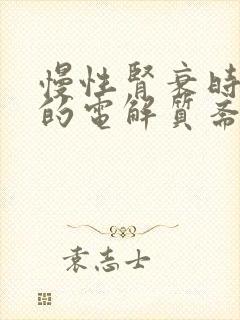 慢性腎衰時
的電解質斋
袁志士